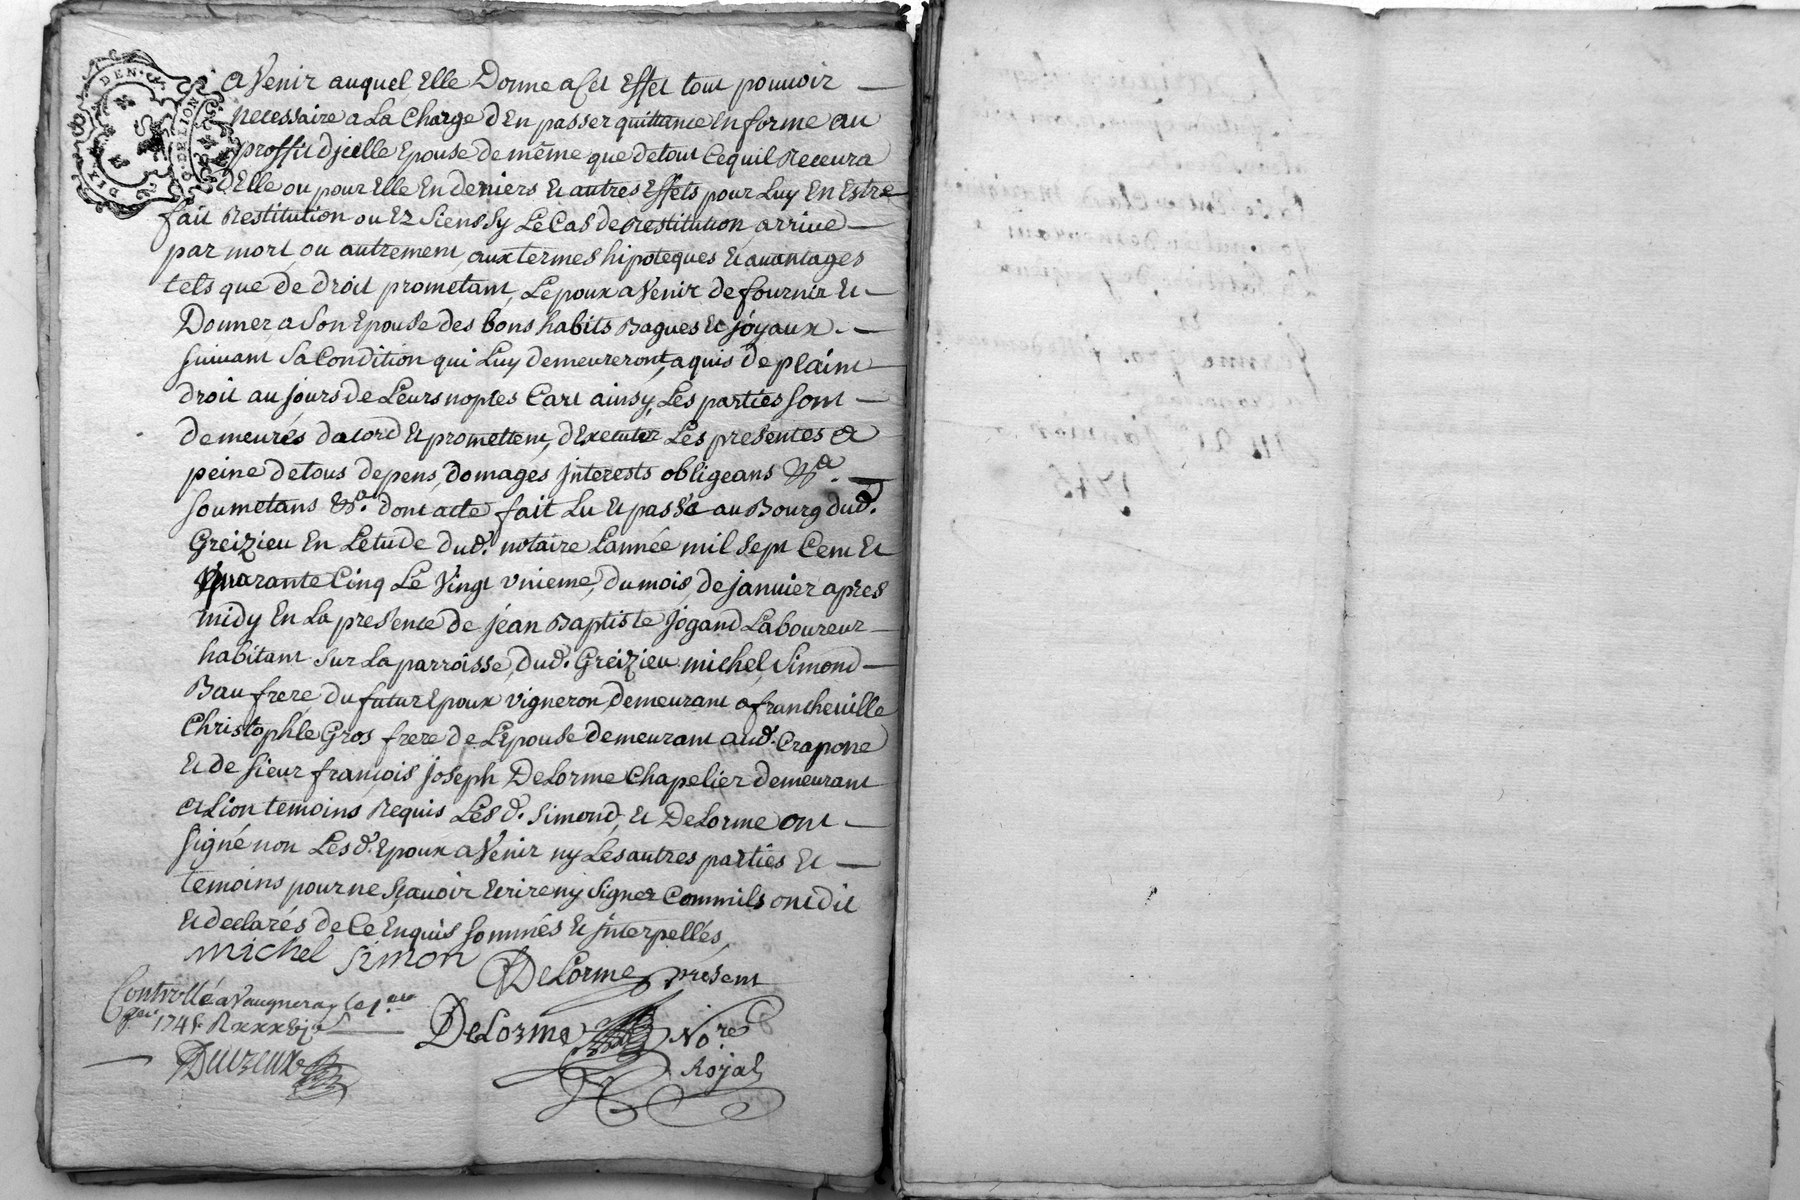 DIX DEN.
G. DE LION
a Venir auquel Elle Donne a Cet Effet tout pouvoir
necessaire a La Charge d'En passer quittance En forme au
proffit d'jcelle Epouse de même que de tout Ce quil Recevra
d'Elle ou pour Elle En deniers Et autres Effets pour Luy En Estre
fait Restitution ou Ez Siens Sy Le Cas de Restitution arrive
par mort ou autrement aux termes hipoteques Et avantages
tels que de droit prometant L'epoux a Venir de fournir Et
Donner a Son Epouse des bons habits Bagues Et joyaux
suivant Sa Condition qui Luy demeureront aquis de plaint
droit au jours de Leurs noptes Cart ainsy Les parties Sont
demeurés dacord Et promettent d'Executer Les presentes a
peine de tous depens, domages jnterests obligeans &a.
soumetans &a. dont acte fait Lu Et passé au Bourg dud.
Greizieu En Letude dud. notaire Lannée mil Sept Cent Et
quarante Cinq Le Vingt Vnieme, du mois, de janvier apres
midy En La presence de jean Baptiste jogand Laboureur
habitant Sur La parroisse, dud. Greizieu michel, Simond
Baufrere du futur Epoux vigneron demeurant a francheville
Christophle Gros frere de L'Epouse demeurant aud. Crapone
Et de Sieur françois joseph DeLorme Chapelier demeurant
a Lion temoins Requis Les d. Simond, Et DeLorme ont
signé non Lesd. Epoux a Venir ny Les autres parties Et
temoins pour ne Sçavoir Ecrire ny Signer Comm'ils ont dit
Et declarés de Ce Enquis Sommés Et jnterpellés,
michel simon
DeLorme present
Controllé a Vaugneray le 1er
1745 R xxx
DeLorme No.re
Royal